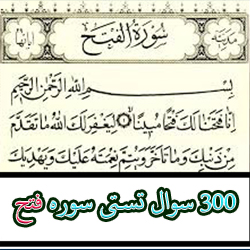 سُورَةُ الْفَتْحِ
مدنية
بِسْمِ اللَّهِ الرَّحْمَٰنِ الرَّحِيمِ
إِنَّا فَتَحْنَا لَكَ فَتْحًا مُبِينًا ۝ لِيَغْفِرَ لَكَ اللَّهُ مَا تَقَدَّمَ
مِنْ ذَنْبِكَ وَمَا تَأَخَّرَ وَيُتِمَّ نِعْمَتَهُ عَلَيْكَ وَيَهْدِيَكَ
300 سوال تستی سوره فتح